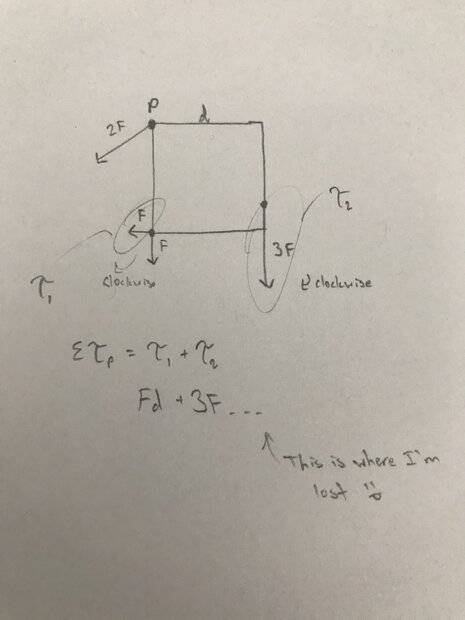 P
d
2F
F
F
3F
τ₂
τ₁
clockwise
clockwise
Στₚ = τ₁ + τ₂
Fd + 3F...
This is where I'm
lost